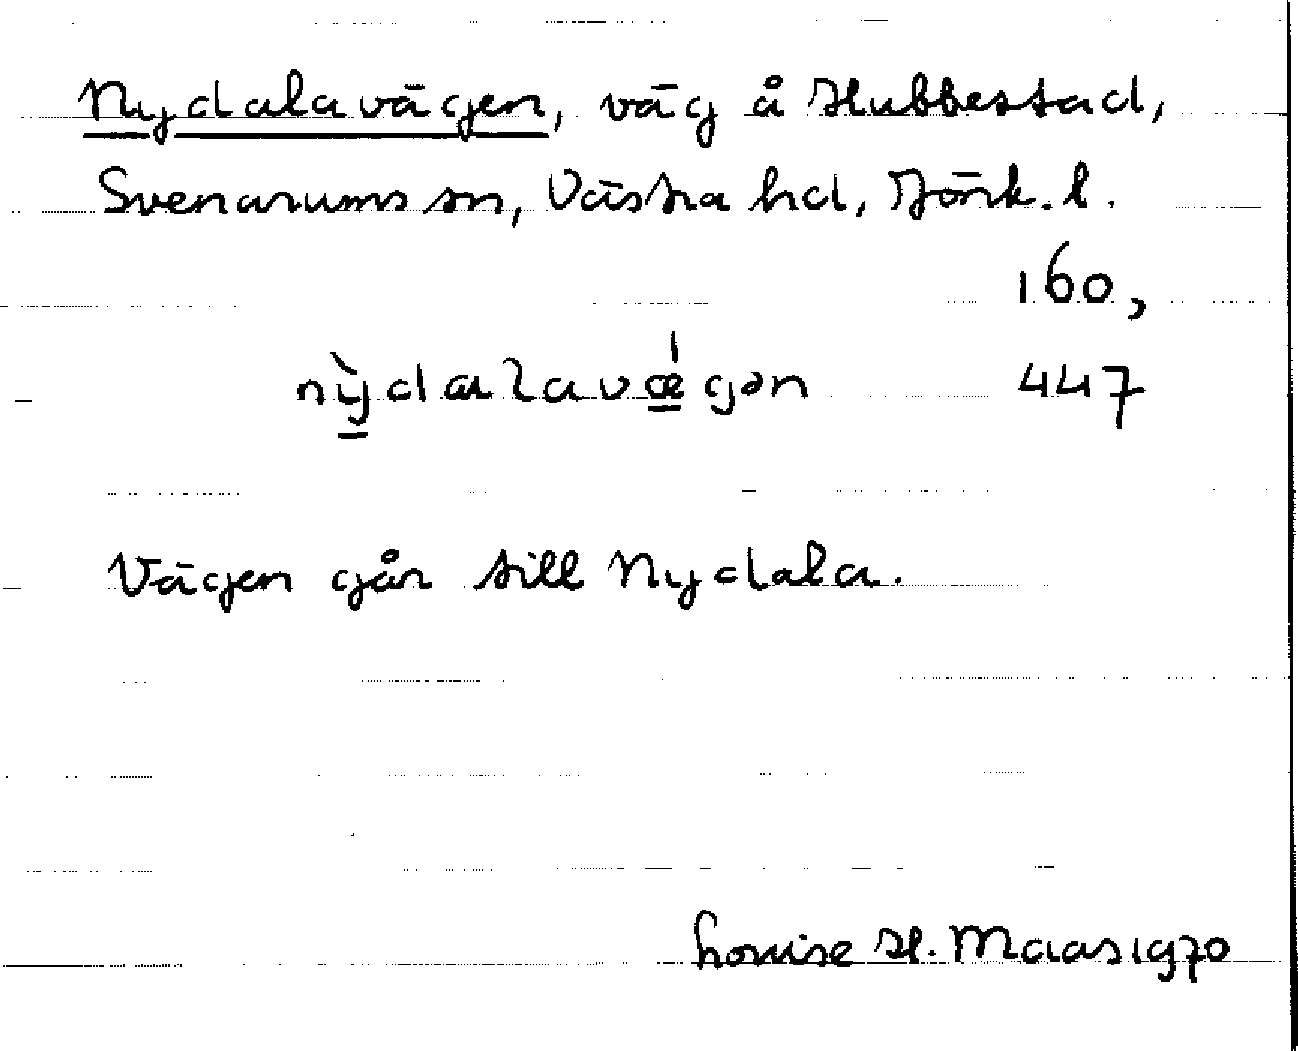 Nydalavägen, väg å Hubbestad,
Svenarums sn, Västra hd, Jönk. l.
160,
nỳdalavǽgən 447
Vägen går till Nydala.
Louise H. Maas 1970